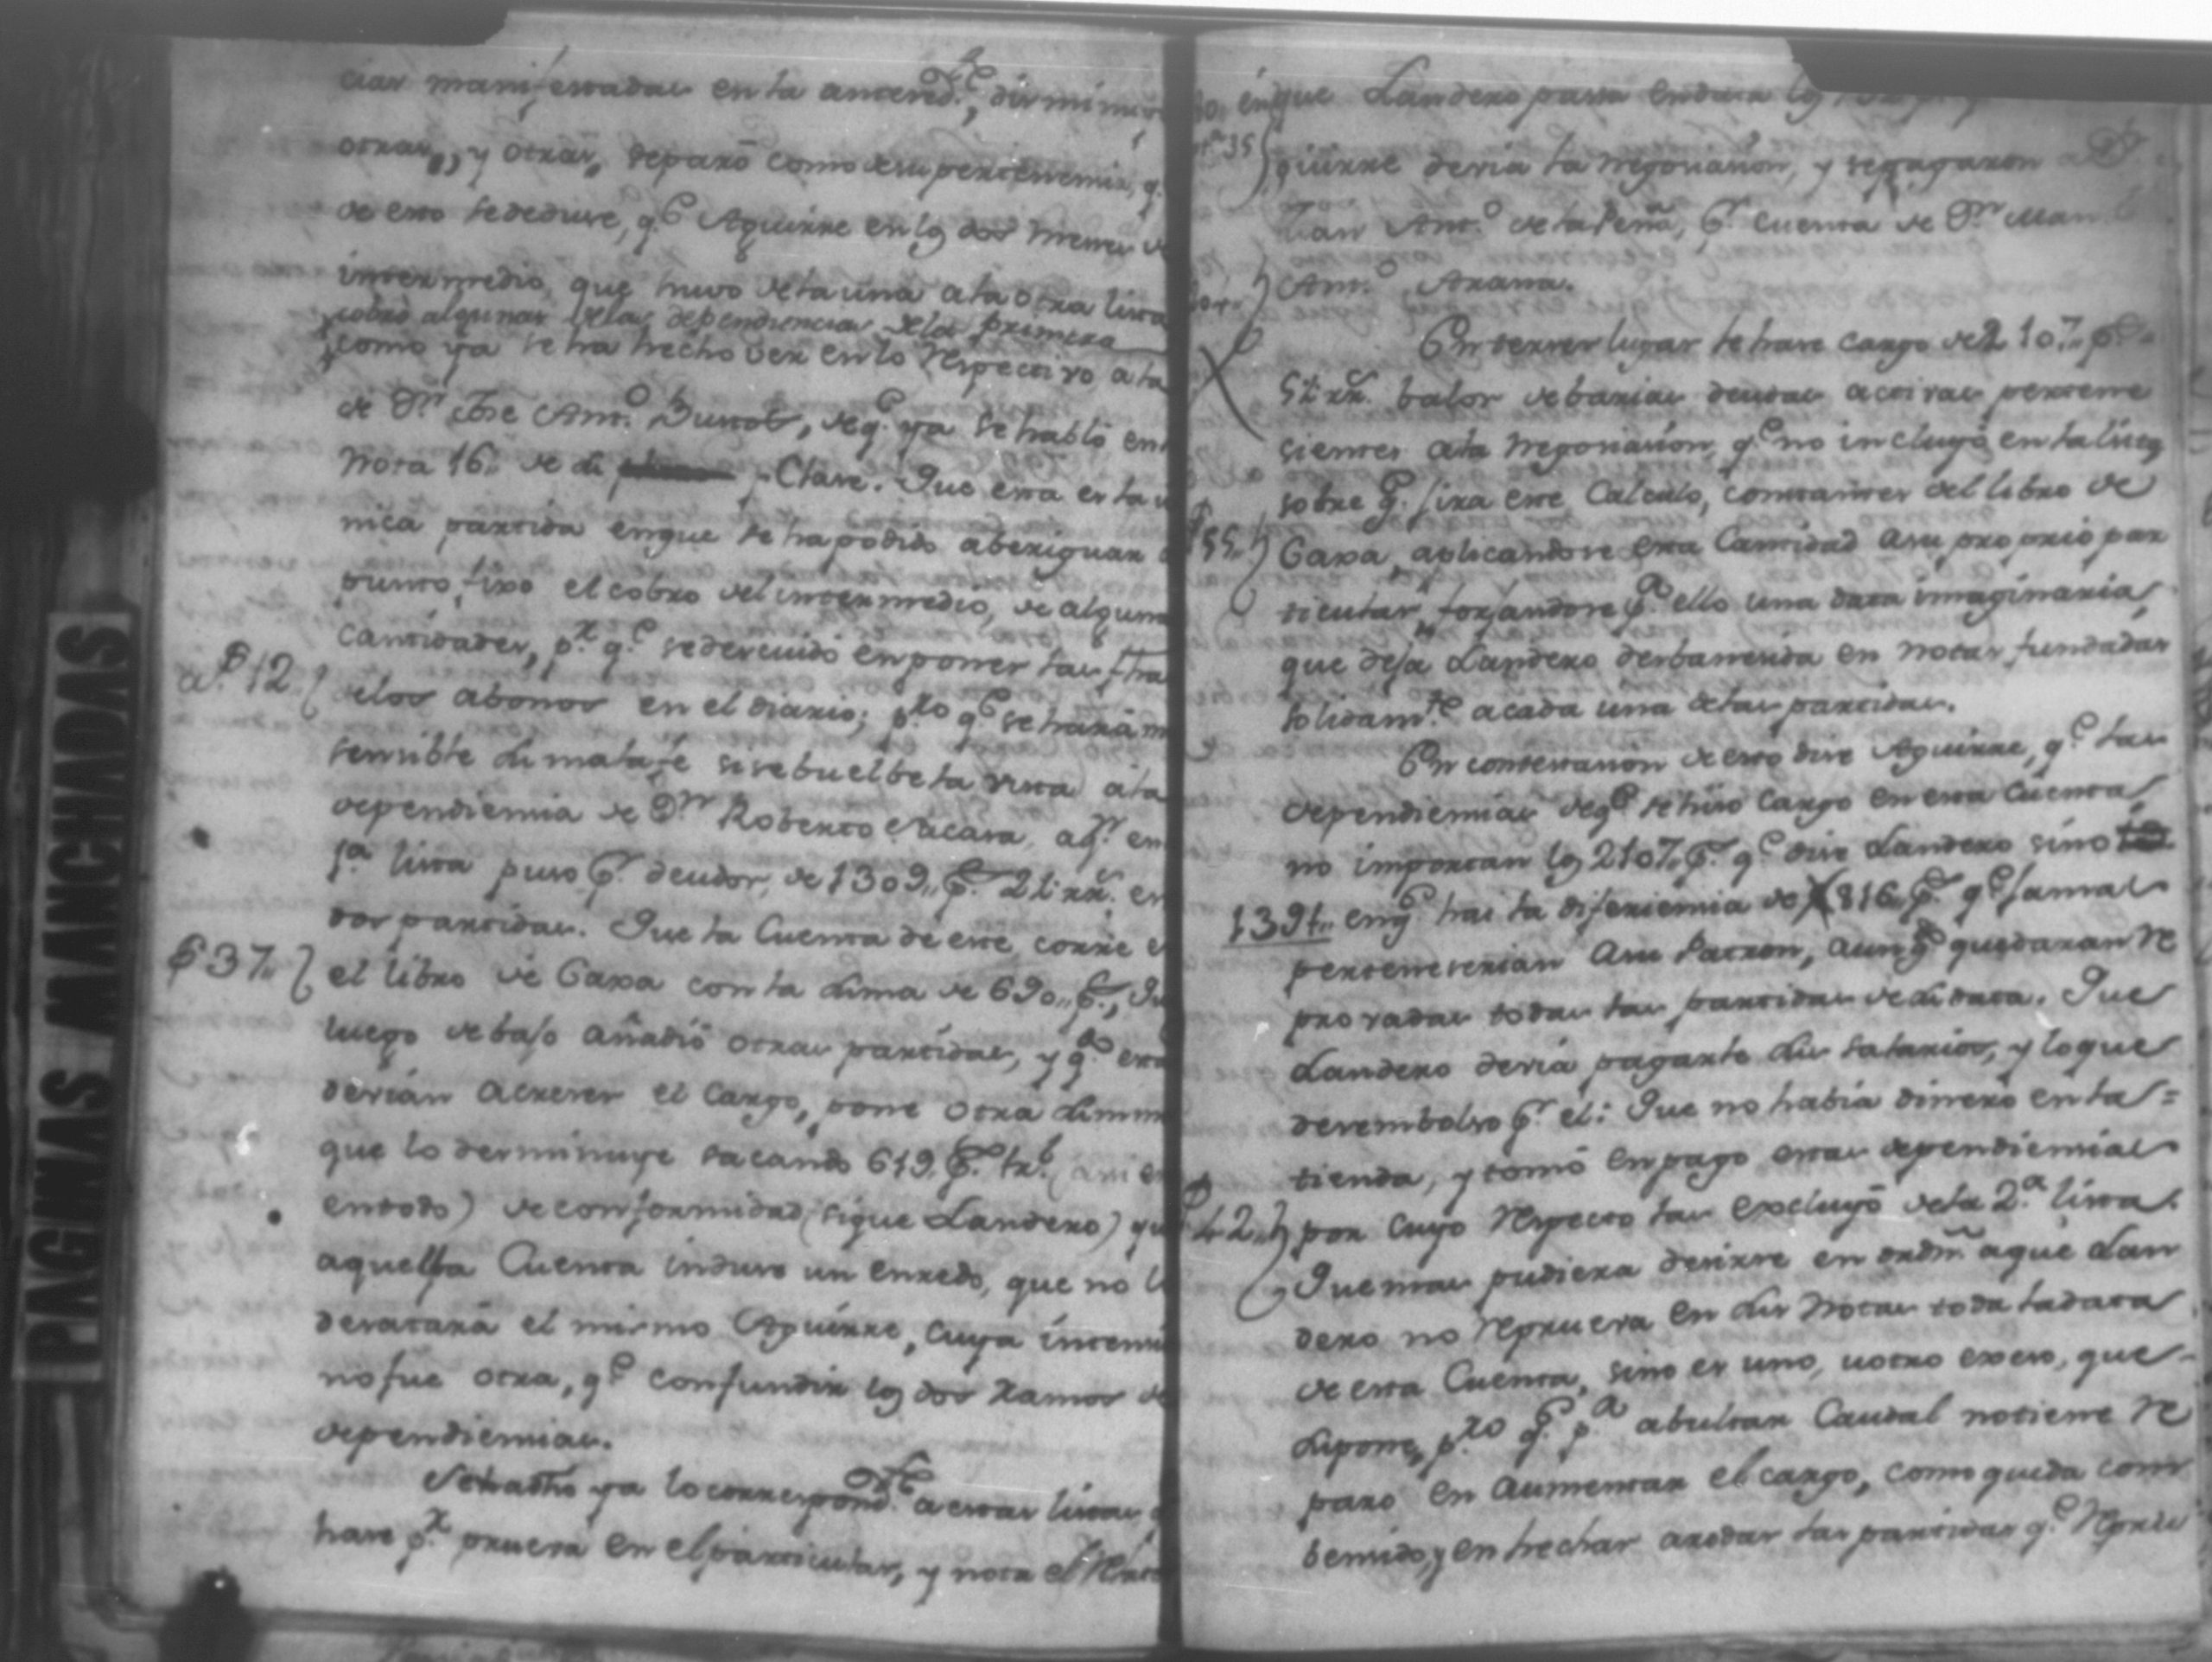 cias manifestadas en la anteced.te, disminuio
otras, y otras, separó como de su pertenencia, q.
de esto se deduce, q.e Aguirre en los dos meses de
intermedio, que huvo de la una a la otra lista
cobró algunas de las dependencias de la primera
como ya se ha hecho ver en lo respectivo a la
de D.n Jose Ant.o Bustos, de q.e ya se habló en
Nota 16,, de su Clave. Que esta es la u
nica partida en que se ha podido aberiguar
punto fixo el cobro del intermedio, de alguna
Cantidades, p.r q.e se descuidó en poner las fhas
a f 12 de los abonos en el diario; p.ro q.e se hará m
sensible su mala fé si se buelbe la vista a la
dependiencia de D.n Roberto a q.n en
1.a lista puso p.r deudor, de 1309,, p.s 2 1 rr.s en
dos partidas. Que la Cuenta de este, corre e
f 37,, el libro de Caxa con la suma de 690,, p.s, Qu
luego debajo añadió otras partidas, y q.do esta
devian acrecer el cargo, pone otra summa
que lo desminuye sacando 619,, p.s
en todo) de conformidad (sigue Landero) que
aquella Cuenta induce un enredo, que no l
desatará el mismo Aguirre, cuya intenci
no fue otra, q.e confundir los dos Ramos de
dependiencias.
Se ha dho ya lo correspond.te a estas listas
hace p.r prueva en el particular, y nota el
en que Landero passa en data los
35 guirre devia la Negociacion, y se pagaron a D.n
Juan Ant.o de la Peña, p.r cuenta de D.n Man.l
Ant.o Arana.
En tercer lugar se hace cargo de 2 107,, p.s
5 1 rr.s balor de barias deudas activas pertene
cientes a la Negociacion, q.e no incluyó en la lista
sobre q.e jira este Calculo, constantes del libro de
f 55,, Caxa, aplicandose esta Cantidad a su proprio par
ticular, forjandose p.a ello una data imaginaria,
que deja Landero desbanecida en notas fundadas
solidam.te a cada una de las partidas.
En contestacion de esto dice Aguirre, q.e las
dependiencias de q.e se hizo cargo en esta Cuenta
no importan los 2107,, p.s q.e dice Landero sino
1391,, en q.e hai la diferiencia de 816,, p.s q.e jamas
pertenecerian a su Patron, aun q.do quedaran re
provadas todas las partidas de su data. Que
Landero devia pagarle sus salarios, y lo que
desembolso p.r el: Que no había dinero en la
tienda, y tomó en pago estas dependiencias
f 42,, por cuyo respecto las excluyó de la 2.a lista.
Que mas pudiera decirse en orden a que Lan
dero no reprueva en sus Notas toda la data
de esta Cuenta, sino es uno, u otro exceso, que
supone, p.ro q.e p.a abultar Caudal no tiene re
paro en aumentar el cargo, como queda com
bencido, y en hechar a rodar las partidas q.e